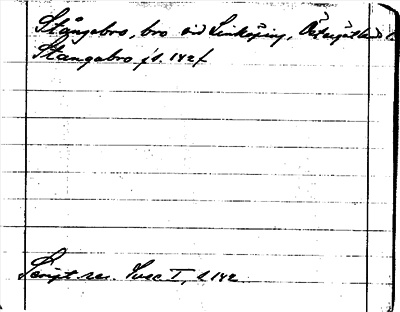 Stångebro, bro vid Linköping, Östergötland
Stangabro fs. 142f
Script rer. Suec I, s 142